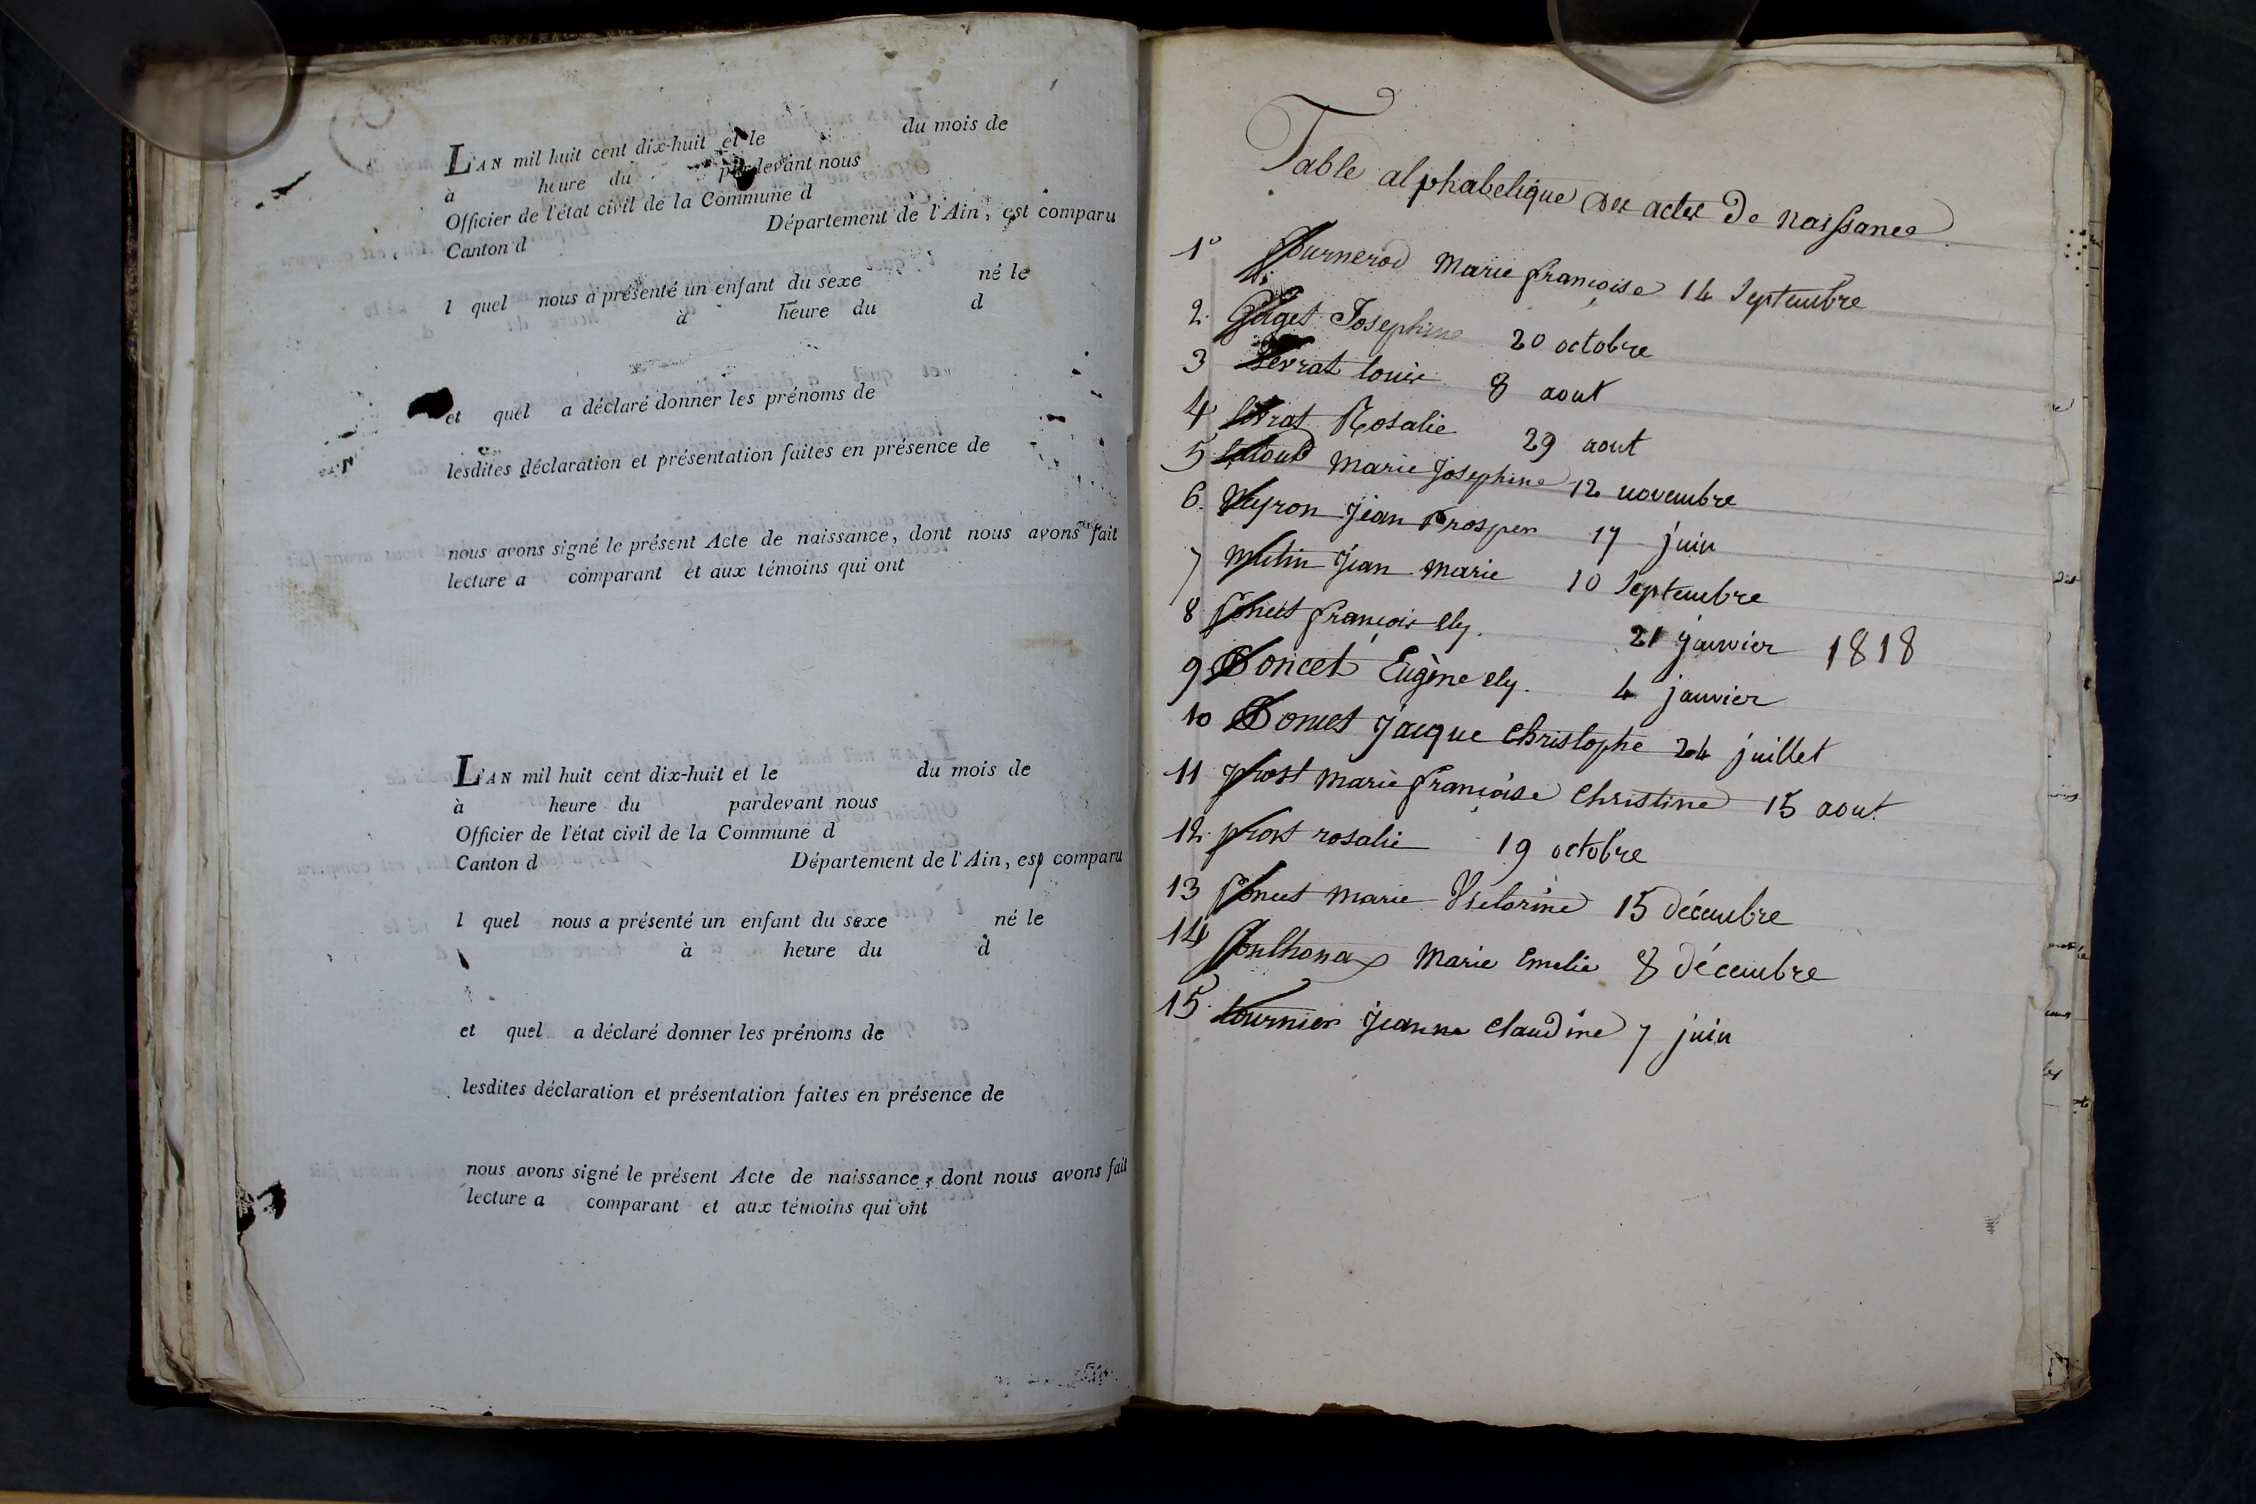 L'AN mil huit cent dix-huit et le du mois de
à heure du pardevant nous
Officier de l'état civil de la Commune d
Canton d Département de l'Ain, est comparu
l quel nous a présenté un enfant du sexe né le
à heure du d
et quel a déclaré donner les prénoms de
lesdites déclaration et présentation faites en présence de
nous avons signé le présent Acte de naissance, dont nous avons fait
lecture a comparant et aux témoins qui ont
L'AN mil huit cent dix-huit et le du mois de
à heure du pardevant nous
Officier de l'état civil de la Commune d
Canton d Département de l'Ain, est comparu
l quel nous a présenté un enfant du sexe né le
à heure du d
et quel a déclaré donner les prénoms de
lesdites déclaration et présentation faites en présence de
nous avons signé le présent Acte de naissance, dont nous avons fait
lecture a comparant et aux témoins qui ont
Table alphabetique des actes de naissance
1° Marie françoise 14 Septembre
2. Goget Josephine 20 octobre
3 Levrat louis 8 aout
4 Levrat Rosalie 29 aout
5 Marie Josephine 12 novembre
6. Meyron Jean Prosper 17 juin
7 Mutin Jean Marie 10 Septembre
8 Poncet françois Ely. 21 janvier 1818
9 Poncet Eugène Ely. 4 janvier
10 Poncet Jacque Christophe 24 juillet
11 prost Marie françoise Christine 15 aout
12. prost rosalie 19 octobre
13 Poncet Marie Victorine 15 décembre
14 Ponthonax Marie Emelie 8 décembre
15. tournier Jeanne Claudine 7 juin